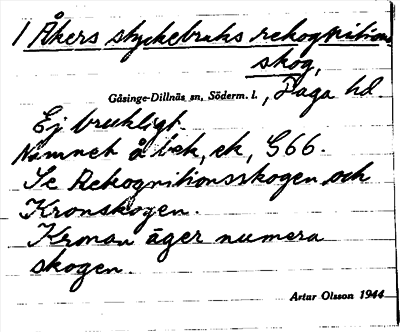 1 Åkers styckebruks rekognitions
skog,
Gåsinge-Dillnäs sn, Söderm. l., Daga hd.
Ej brukligt.
Namnet å bek, ek, G66.
Se Rekognitionsskogen och
Kronskogen.
Kronan äger numera
skogen.
Artar Olsson 1944